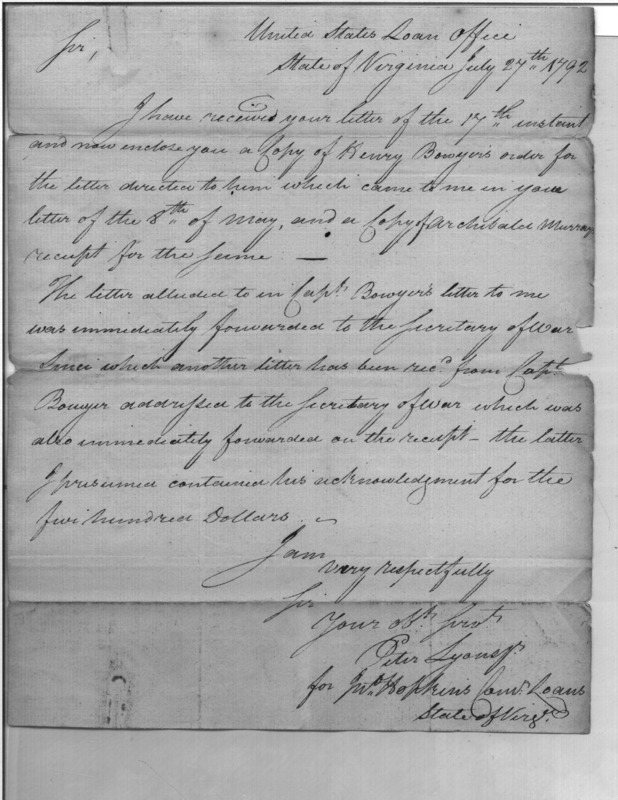 United States Loan Office
Sir,
State of Virginia July 27th 1792
I have received your letter of the 17th instant
and now enclose you a Copy of Henry Bowyer's order for
the letter directed to him which came to me in your
letter of the 8th of May, and a Copy of Archibald Murray
receipt for the same —
The letter alluded to in Capt. Bowyer's letter to me
was immediately forwarded to the Secretary of War
Since which another letter has been recd. from Capt.
Bowyer addressed to the Secretary of War which was
also immediately forwarded on the receipt – the latter
I presumed contained his acknowledgment for the
five hundred Dollars.
I am
very respectfully
Sir
Your obt. Servt.
Peter Lyons jr.
for Jno. Hopkins Comr. Loans
State of Virga.